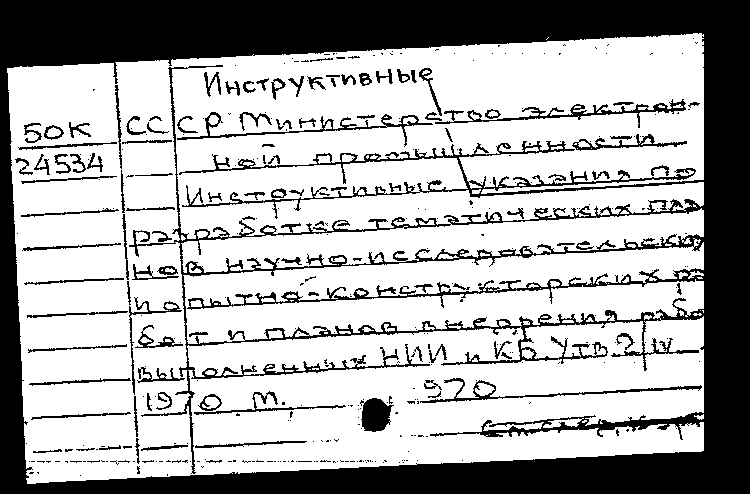 Инструктивные
50К СССР Министерство электрон-
24534 ной промышленности
Инструктивные указания по
разработке тематических пла
нов научно-исследовательских
и опытно-конструкторских ра
бот и планов внедрения рабо
выполненных НИИ и КБ. Утв. 2/IV
1970 М., 970